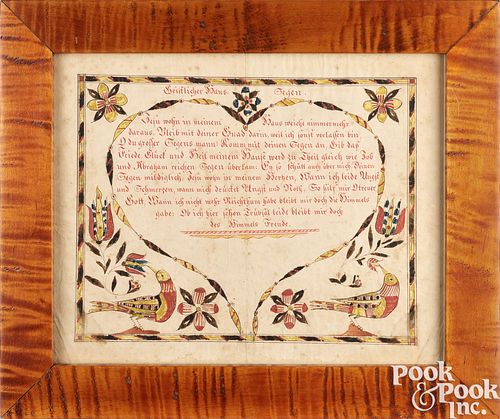 Geistlicher Haus Segen.
Jesu wohn in meinem Haus weiche nimmermehr
daraus. Bleib mit deiner Gnad darin, weil ich sonst verlassen bin
O du großer Segens mann! Komm mit deinen Segen an, Gib daß
Friede Glück und Heil meinem Hause werd zu Theil gleich wie Job
und Abraham reichen Segen überkam. Ey so schütt auf mich Deinen
Segen mildiglich. Jesu wohn in meinem Hertzen, Wann ich leide Angst
und Schmertzen, wann mich drücket Angst und Noth. So hilf mir O treuer
Gott Wann ich nicht mehr Reichthum habe bleibt mir doch die Himmels
gabe: Ob ich hier schon Trübsal leide bleibt mir doch
des Himmels Freude.
Pook
& Pook
Inc.